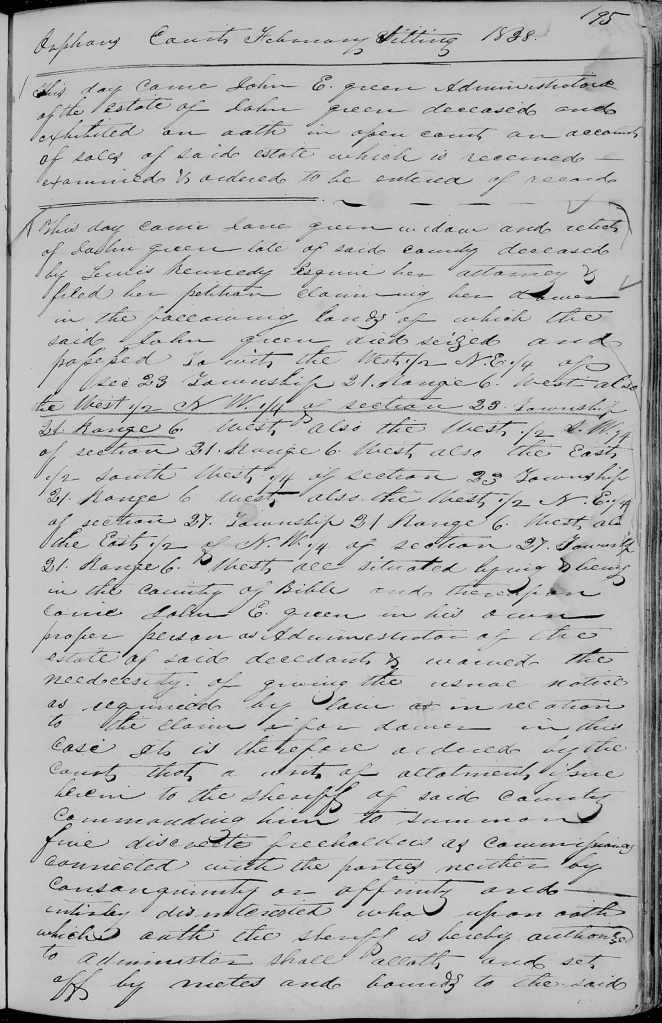 195
Orphans Court February Sitting 1838.
This day came John E. green Administrator
of the estate of John green deceased and
exhibited on oath in open court an account
of sales of said estate which is received
examined & ordered to be entered of record
This day came Jane green widow and relict
of John green late of said county deceased
by Lewis Kennedy Esquire her attorney &
filed her petition claiming her dower
in the following lands of which the
said John green died seized and
possessed To wit, the West 1/2 N.E. 1/4 of
sec 23 Township 21. Range 6. West also
the West 1/2 N W. 1/4 of section 23. Township
21 Range 6 West also the West 1/2 S. W 1/4
of section 21. Range 6. West also the East
1/2 South West 1/4 of section 23 Township
21. Range 6 West also the West 1/2 N. E. 1/4
of section 27. Township 21 Range 6. West also
the East 1/2 of N. W. 1/4 of section 27. Township
21. Range 6. West all situated lying & being
in the county of Bibb and thereupon
came John E. green in his own
proper person as Administrator of the
estate of said decedant & waived the
neecesity of giving the usual notice
as required by law in relation
to the claim for dower in this
case It is therefore ordered by the
court that a writ of allotment issue
herein to the sheriff of said county
commanding him to summon
five discrete freeholders as commissioners
connected with the parties neither by
consanguinity or affinity and
entirley disinterested who upon oath
which oath the sheriff is hereby authorized
to administer shall allott and set
off by metes and bounds to the said